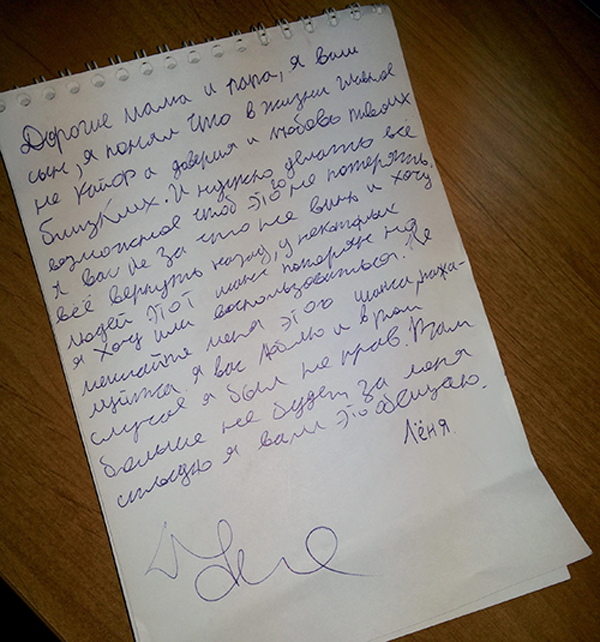 Дорогие мама и папа, я ваш
сын, я понял что в жизни главное
не кайф а доверия и любовь твоих
близких. И нужно делать всё
возможное чтоб этого не потерять.
Я вас не за что не виню и хочу
всё вернуть назад, у некоторых
людей этот шанс потерян но
я хочу им воспользоваться. Не
лишайте меня этого шанса, пожа-
луйста. Я вас люблю и в том
случае я был не прав. Вам
больше не будет за меня
стыдно я вам это обещаю.
Лёня.